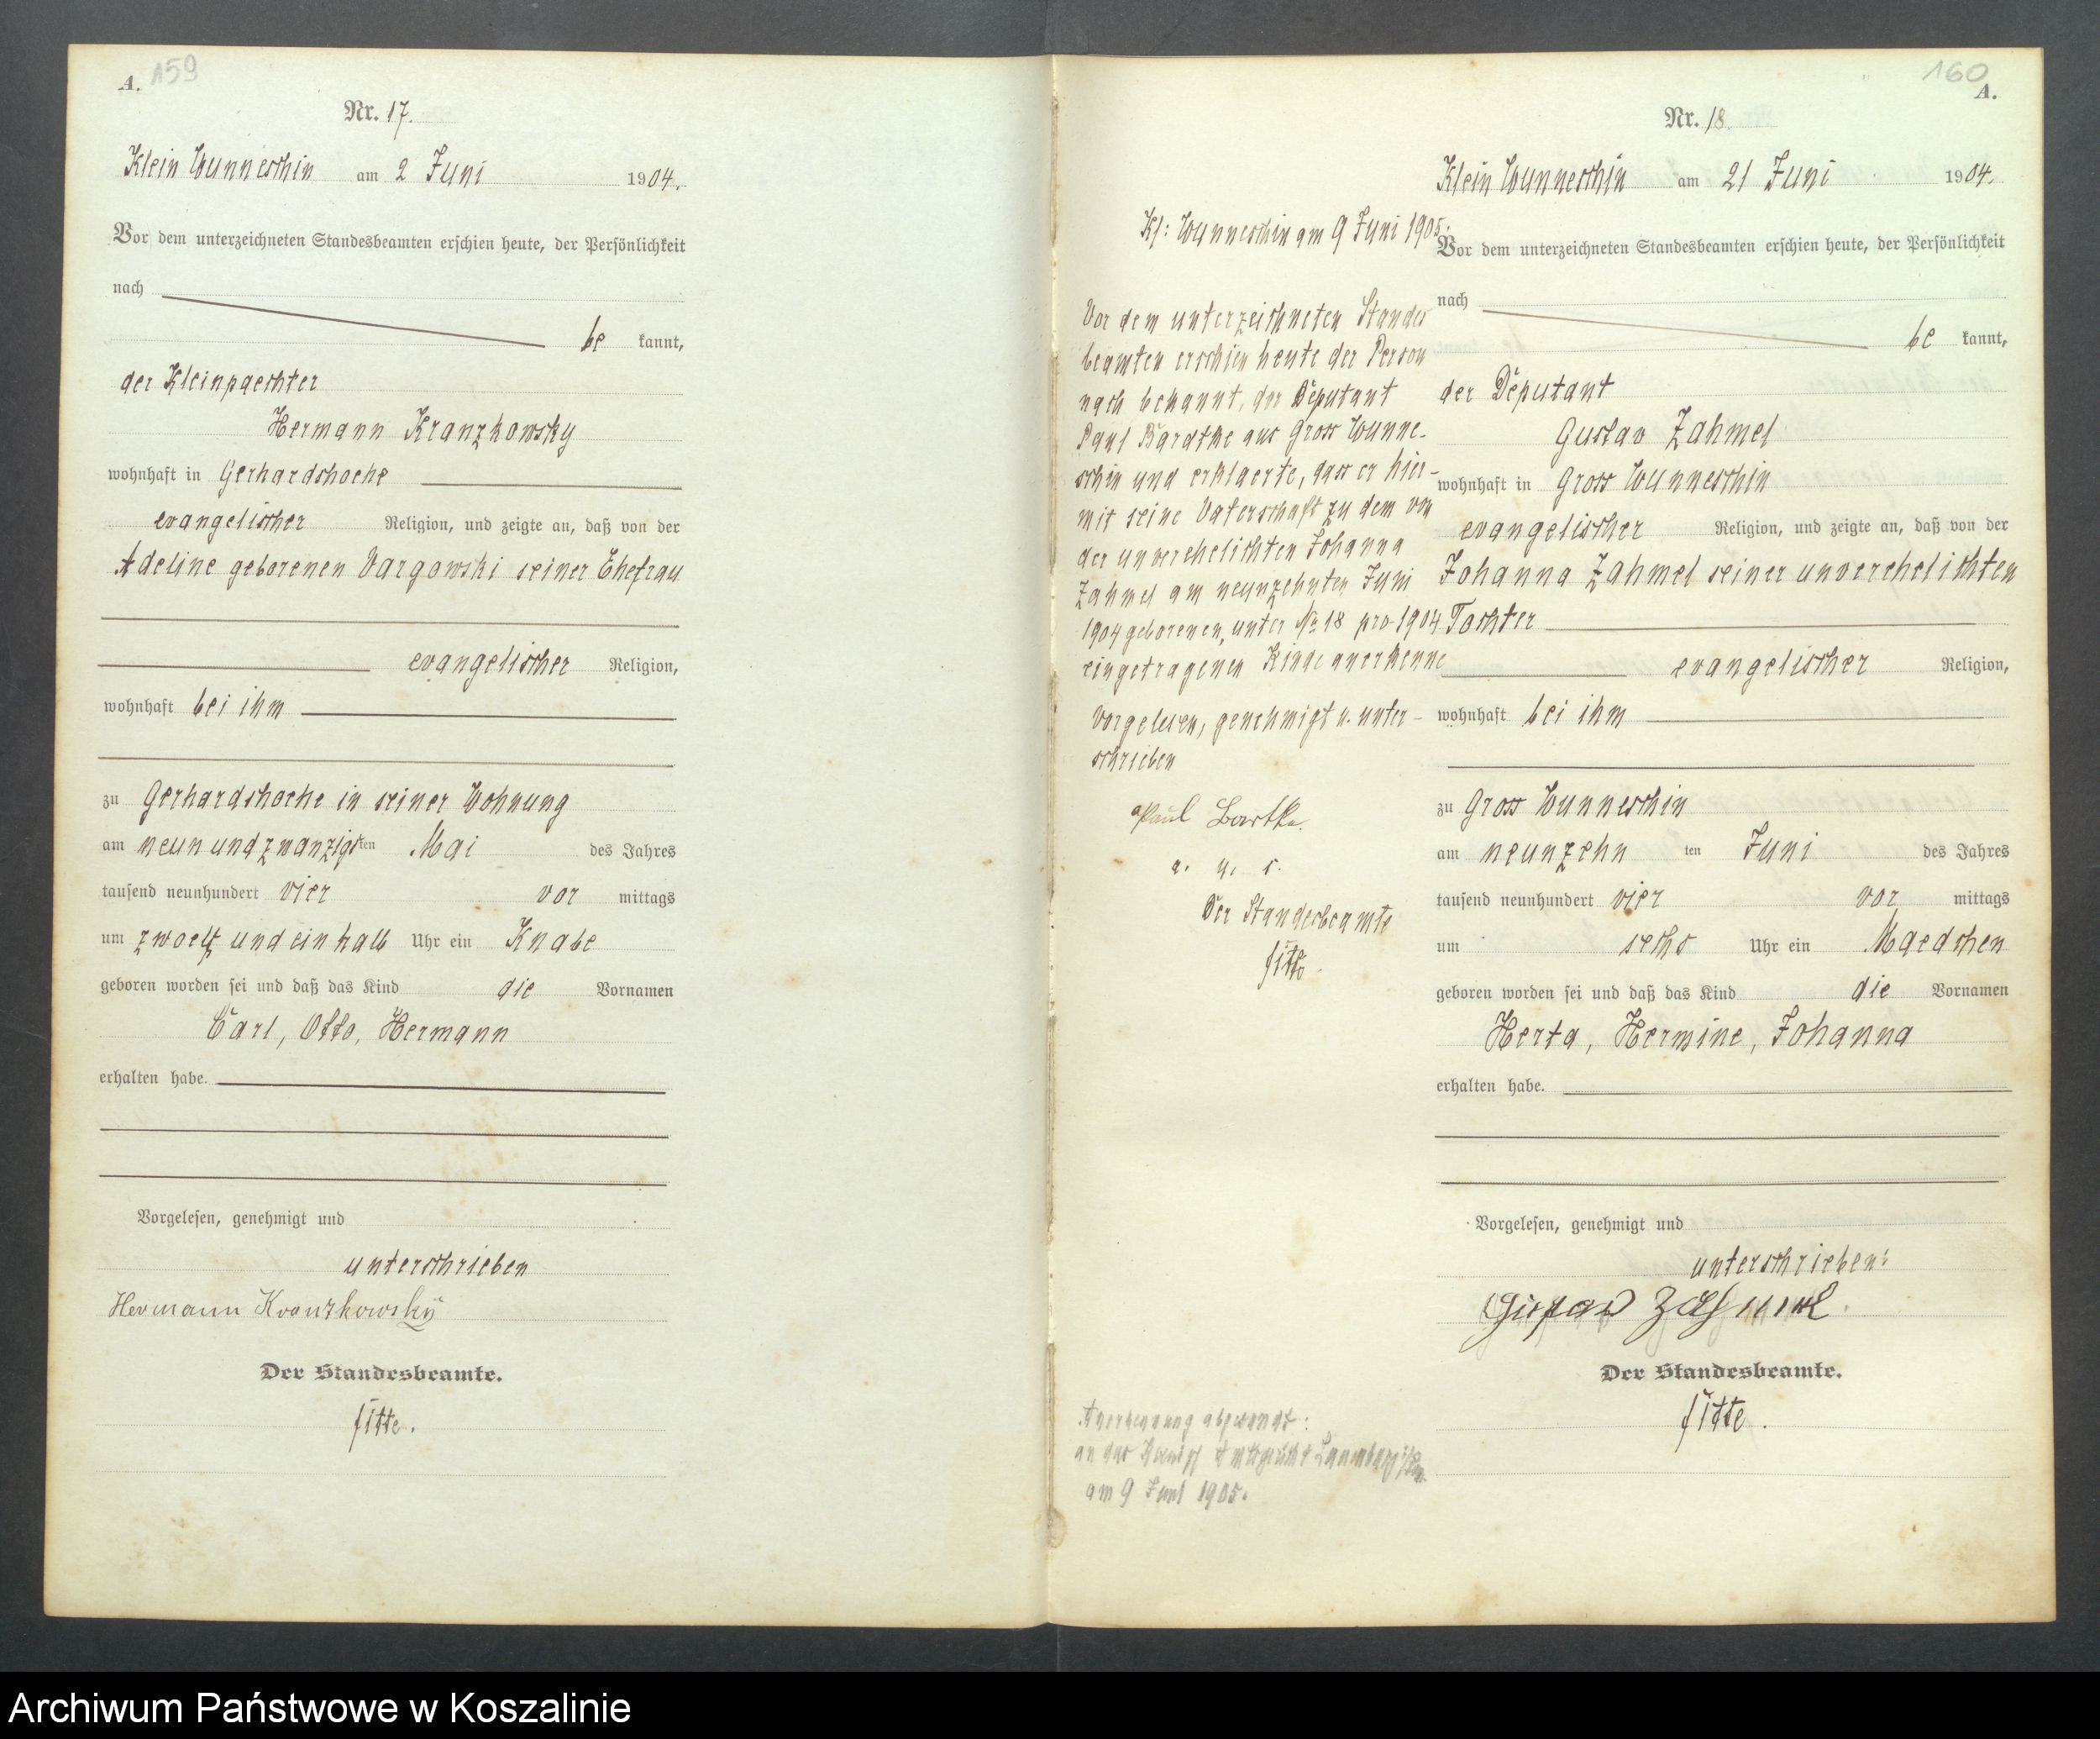 A. 159
Nr. 17.
Klein Wunneschin am 2 Juni 1904.
Vor dem unterzeichneten Standesbeamten erschien heute, der Persönlichkeit
nach
be kannt,
der Kleinpaechter
Hermann Kranzkowsky
wohnhaft in Gerhardshoehe
evangelischer Religion, und zeigte an, daß von der
Adeline geborenen Vargowski seiner Ehefrau
evangelischer Religion,
wohnhaft bei ihm
zu Gerhardshoehe in seiner Wohnung
am neun und zwanzigsten Mai des Jahres
tausend neunhundert vier vor mittags
um zwoelf und ein halb Uhr ein Knabe
geboren worden sei und daß das Kind die Vornamen
Carl, Otto, Hermann
erhalten habe.
Vorgelesen, genehmigt und
unterschrieben
Hermann Kranzkowsky
Der Standesbeamte.
fitte.
160
A.
Nr. 18
Klein Wunneschin am 21 Juni 1904.
Vor dem unterzeichneten Standesbeamten erschien heute, der Persönlichkeit
nach
be kannt,
der Deputant
Gustav Zahmel
wohnhaft in Gross Wunneschin
evangelischer Religion, und zeigte an, daß von der
Johanna Zahmel seiner unverehelichten
Tochter
evangelischer Religion,
wohnhaft bei ihm
zu Gross Wunneschin
am neunzehn ten Juni des Jahres
tausend neunhundert vier vor mittags
um sechs Uhr ein Maedchen
geboren worden sei und daß das Kind die Vornamen
Herta, Hermine, Johanna
erhalten habe.
Vorgelesen, genehmigt und
unterschrieben:
Gustav Zahmel.
Der Standesbeamte.
fitte.
Kl: Wunneschin am 9 Juni 1905.
Vor dem unterzeichneten Standes
beamten erschien heute der Person
nach bekannt, der Deputant
Paul Bardtke aus Gross Wunne-
schin und erklaerte, dass er hier-
mit seine Vaterschaft zu dem von
der unverehelichten Johanna
Zahmel am neunzehnten Juni
1904 geborenen, unter No 18 pro 1904
eingetragenen Kinde anerkenne
Vorgelesen, genehmigt u. unter-
schrieben
Paul Bartke.
a. u. s.
Der Standesbeamte
fitte
Anerkennung abgesandt:
an das Koenigl Amtsgericht Lauenburg i/Pom.
am 9 Juni 1905.
Archiwum Państwowe w Koszalinie